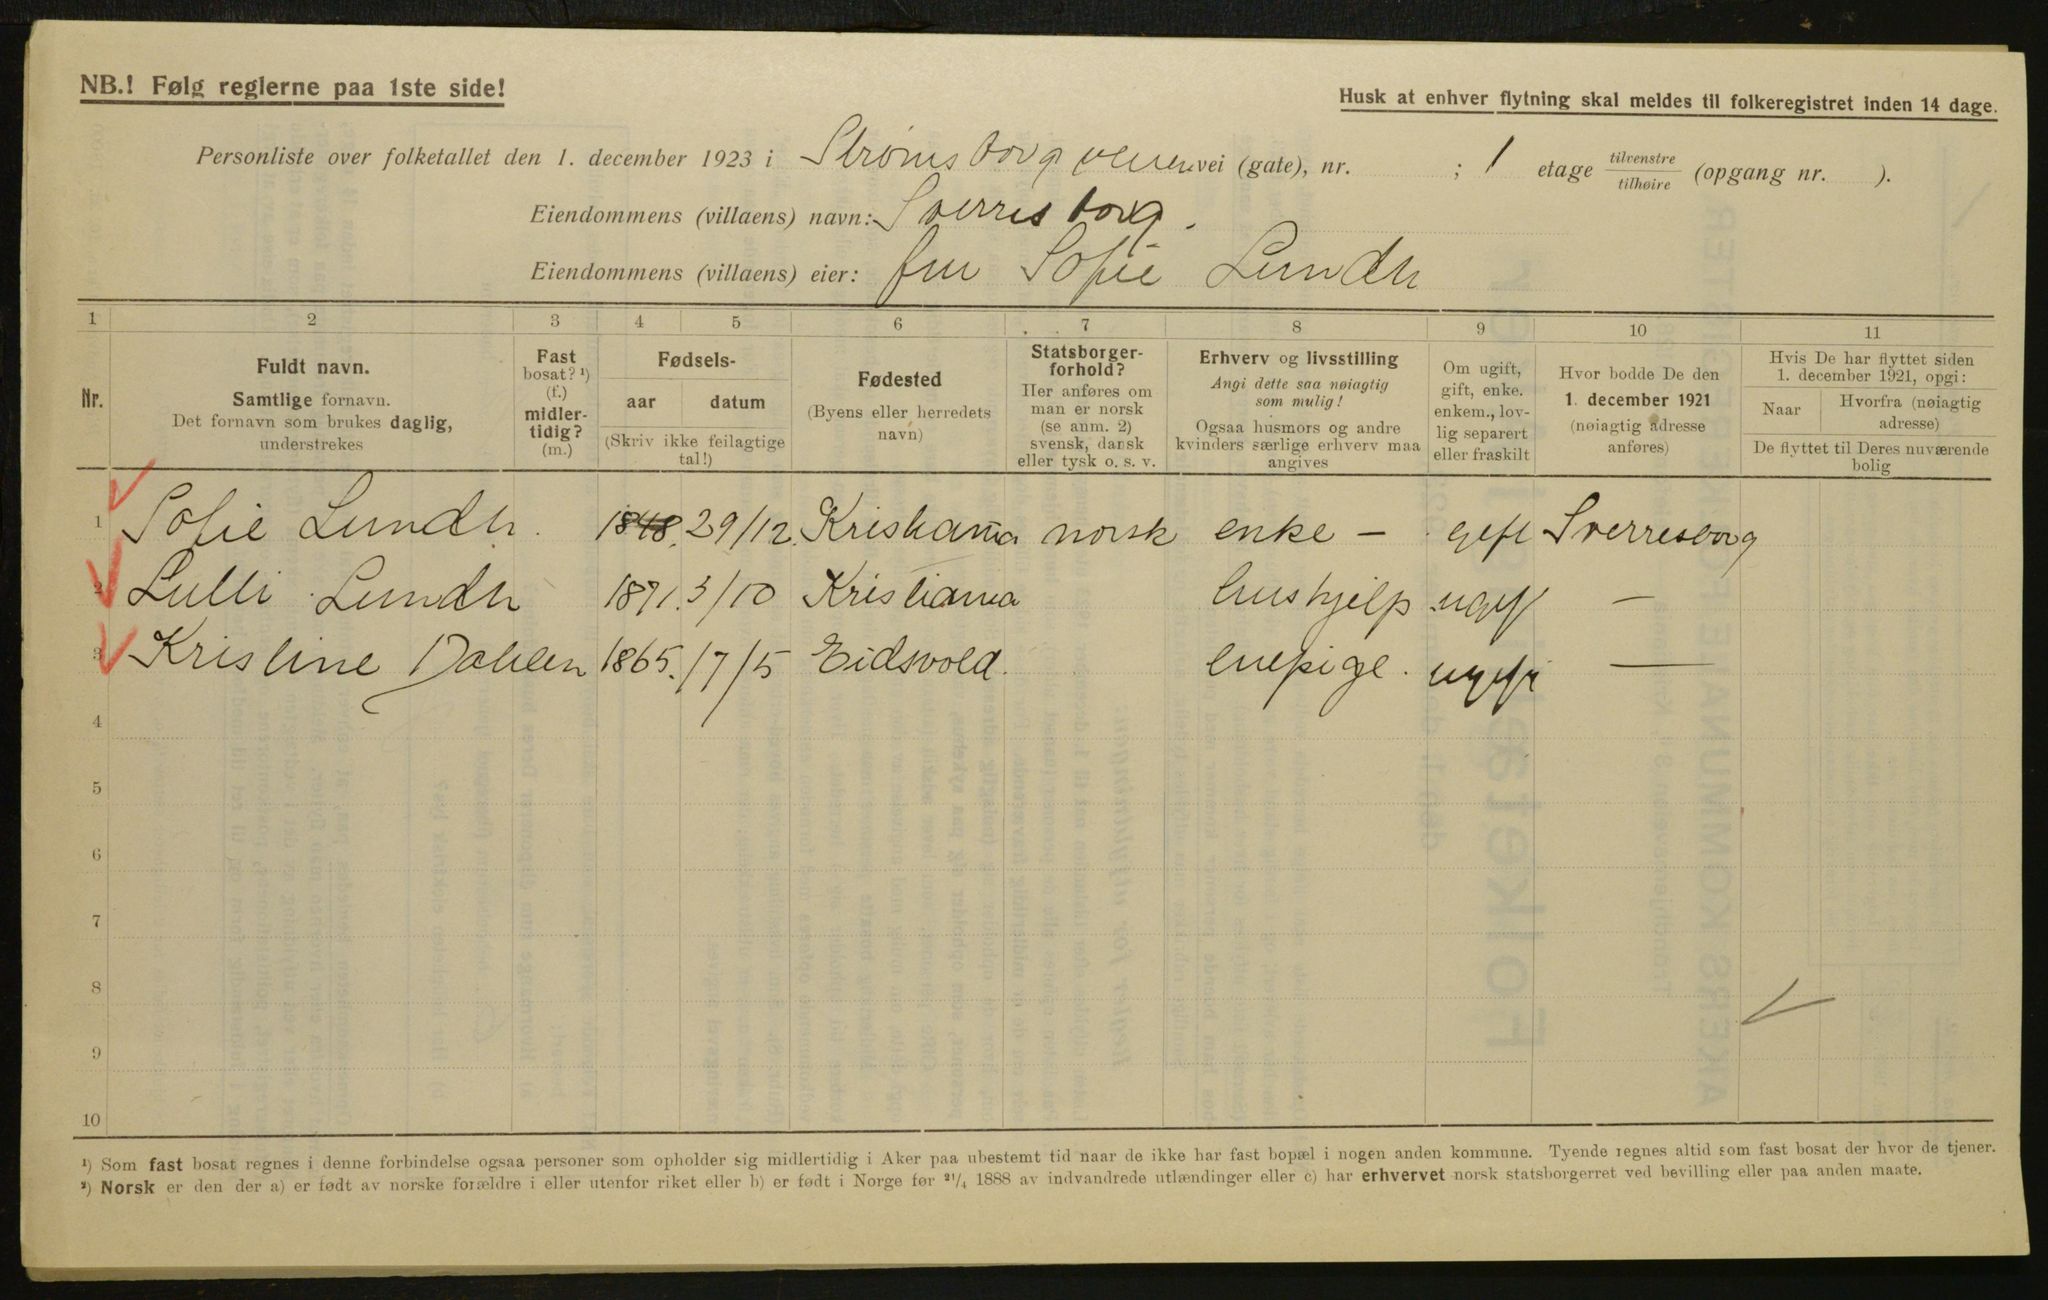 NB.! Følg reglerne paa 1ste side!
Husk at enhver flytning skal meldes til folkeregistret inden 14 dage.
Personliste over folketallet den 1. december 1923 i Strømsborgveien vei (gate), nr. ; 1 etage tilvenstre/tilhøire (opgang nr. ).
Eiendommens (villaens) navn: Sverresborg.
Eiendommens (villaens) eier: fru Sofie Lundh
1 2 3 4 5 6 7 8 9 10 11
Nr.
Fuldt navn.
Samtlige fornavn.
Det fornavn som brukes daglig,
understrekes
Fast
bosat? ¹)
(f.)
midler-
tidig?
(m.)
Fødsels-
aar datum
(Skriv ikke feilagtige
tal!)
Fødested
(Byens eller herredets
navn)
Statsborger-
forhold?
Her anføres om
man er norsk
(se anm. 2)
svensk, dansk
eller tysk o. s. v.
Erhverv og livsstilling
Angi dette saa nøiagtig
som mulig!
Ogsaa husmors og andre
kvinders særlige erhverv maa
angives
Om ugift,
gift, enke.
enkem., lov-
lig separert
eller fraskilt
Hvor bodde De den
1. december 1921
(nøiagtig adresse
anføres)
Hvis De har flyttet siden
1. december 1921, opgi:
Naar Hvorfra (nøiagtig
adresse)
De flyttet til Deres nuværende
bolig
1 Sofie Lundh. 1848. 29/12. Kristiania norsk enke – gift Sverresborg
2 Lulli Lundh 1871. 3/10 Kristiania hushjelp ugift —
3 Kristine Dahlen 1865. 17/5 Eidsvold. enepige. ugift —
4
5
6
7
8
9
10
¹) Som fast bosat regnes i denne forbindelse ogsaa personer som opholder sig midlertidig i Aker paa ubestemt tid naar de ikke har fast bopæl i nogen anden kommune. Tyende regnes altid som fast bosat der hvor de tjener.
²) Norsk er den der a) er født av norske forældre i eller utenfor riket eller b) er født i Norge før ²¹/₄ 1888 av indvandrede utlændinger eller c) har erhvervet norsk statsborgerret ved bevilling eller paa anden maate.